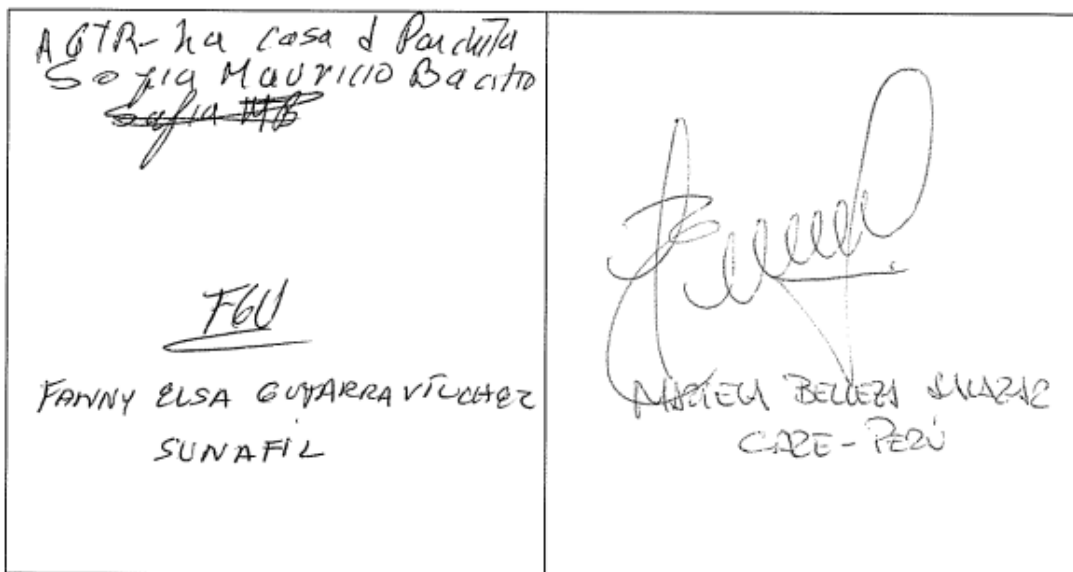 AGTR- La casa d Panchita
Sofia Mauricio Bacilio
Sofia MB
FGU
FANNY ELSA GUTARRA VILCHEZ
SUNAFIL
MARIELA BELLEZA SALAZAR
CARE - PERÚ